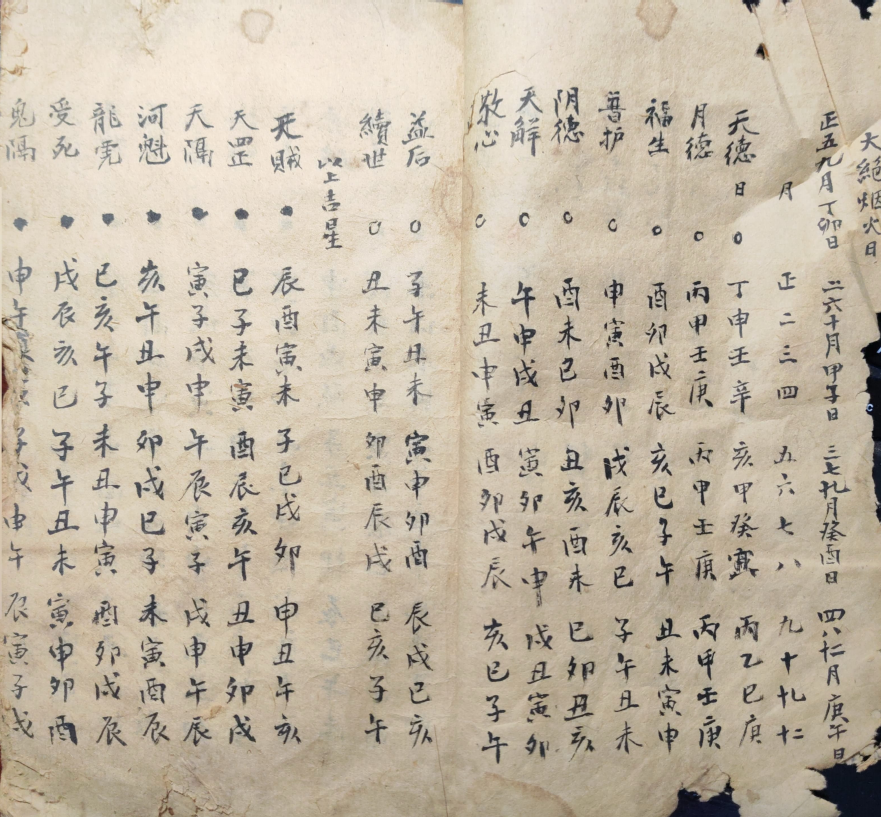 大絕烟火日
正五九月丁卯日 二六十月甲子日 三七十一月癸酉日 四八十二月庚午日
月 正二三四 五六七八 九十十一十二
天德日 ○ 丁申壬辛 亥甲癸寅 丙乙巳庚
月德 ○ 丙甲壬庚 丙甲壬庚 丙甲壬庚
福生 ○ 酉卯戌辰 亥巳子午 丑未寅申
普护 ○ 申寅酉卯 戌辰亥巳 子午丑未
阴德 ○ 酉未巳卯 丑亥酉未 巳卯丑亥
天解 ○ 午申戌丑 寅卯午申 戌丑寅卯
敬心 ○ 未丑申寅 酉卯戌辰 亥巳子午
益后 ○ 子午丑未 寅申卯酉 辰戌巳亥
續世 ○ 丑未寅申 卯酉辰戌 巳亥子午
以上吉星
天賊 ● 辰酉寅未 子巳戌卯 申丑午亥
天罡 ● 巳子未寅 酉辰亥午 丑申卯戌
天隔 ● 寅子戌申 午辰寅子 戌申午辰
河魁 ● 亥午丑申 卯戌巳子 未寅酉辰
龍虎 ● 巳亥午子 未丑申寅 酉卯戌辰
受死 ● 戌辰亥巳 子午丑未 寅申卯酉
鬼隔 ● 申午 子戌申午 辰寅子戌